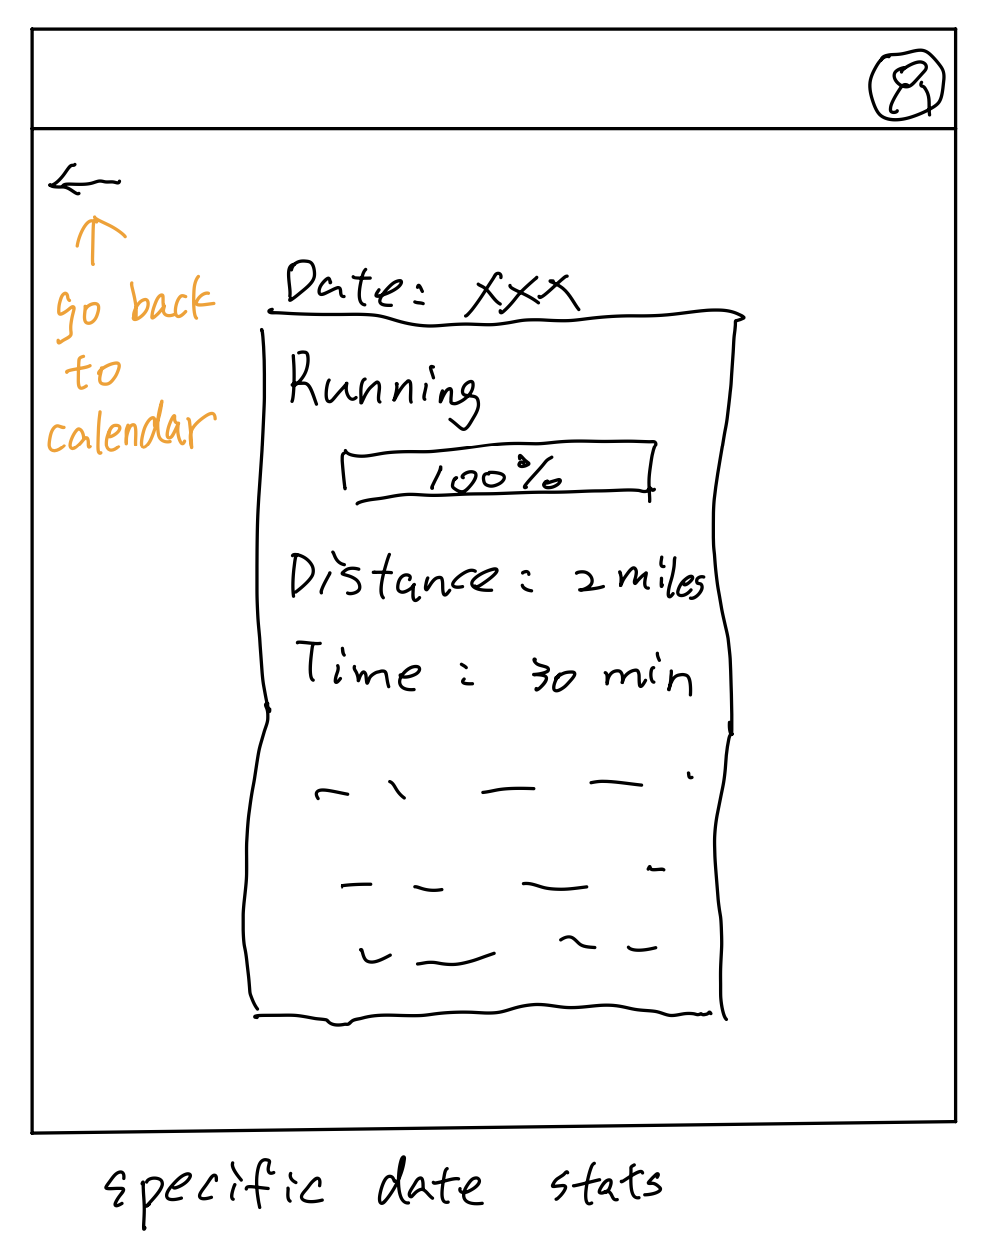 Date: xxx
go back
to
calendar
Running
100%
Distance: 2 miles
Time: 30 min
specific date stats